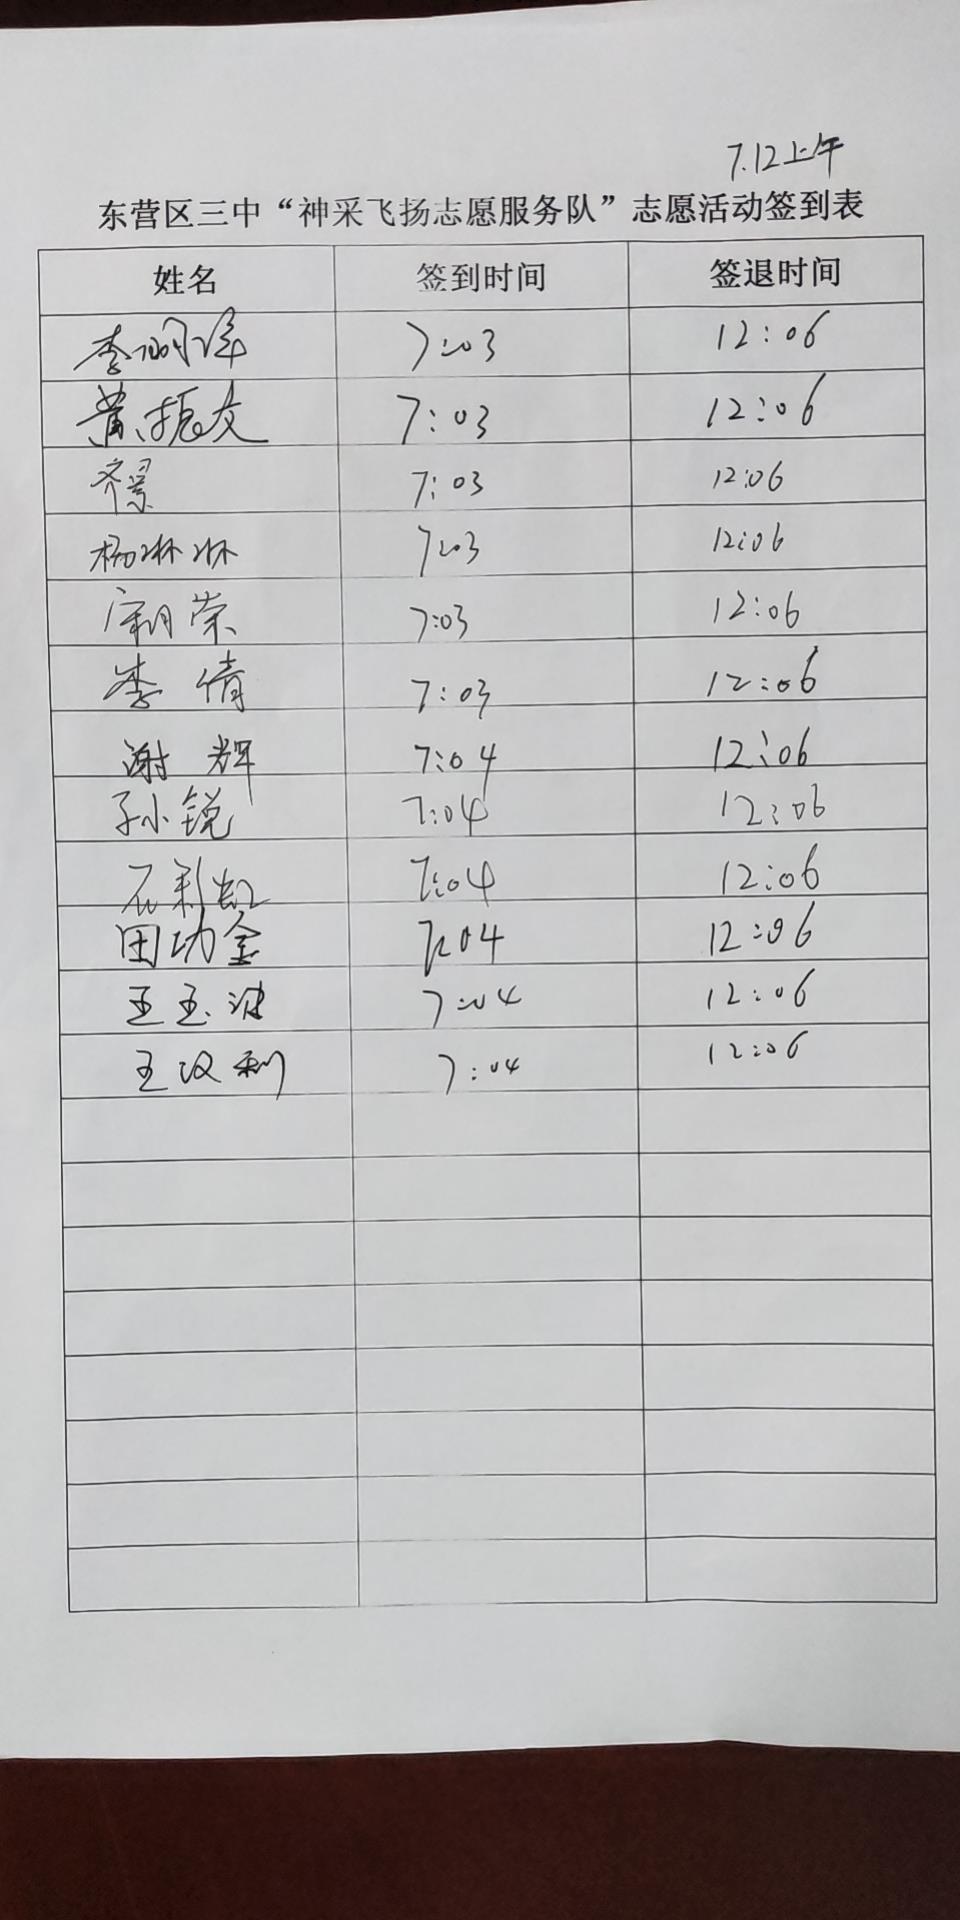 7.12上午
东营区三中“神采飞扬志愿服务队”志愿活动签到表
姓名 签到时间 签退时间
李 7:03 12:06
黄振友 7:03 12:06
齐景 7:03 12:06
杨琳琳 7:03 12:06
荣 7:03 12:06
李倩 7:03 12:06
谢辉 7:04 12:06
孙锐 7:04 12:06
石 7:04 12:06
田功金 7:04 12:06
王玉波 7:04 12:06
王汉利 7:04 12:06